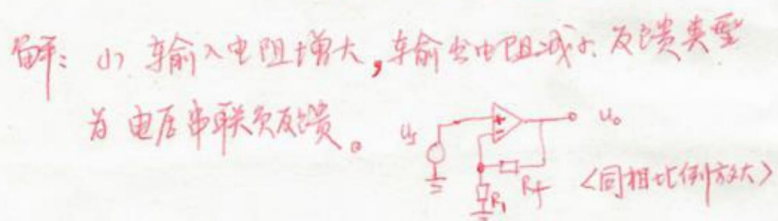 解: (1) 输入电阻增大,输出电阻减小. 反馈类型
为 电压串联负反馈。
us
+
-
uo
Rf
R1
<同相比例放大>